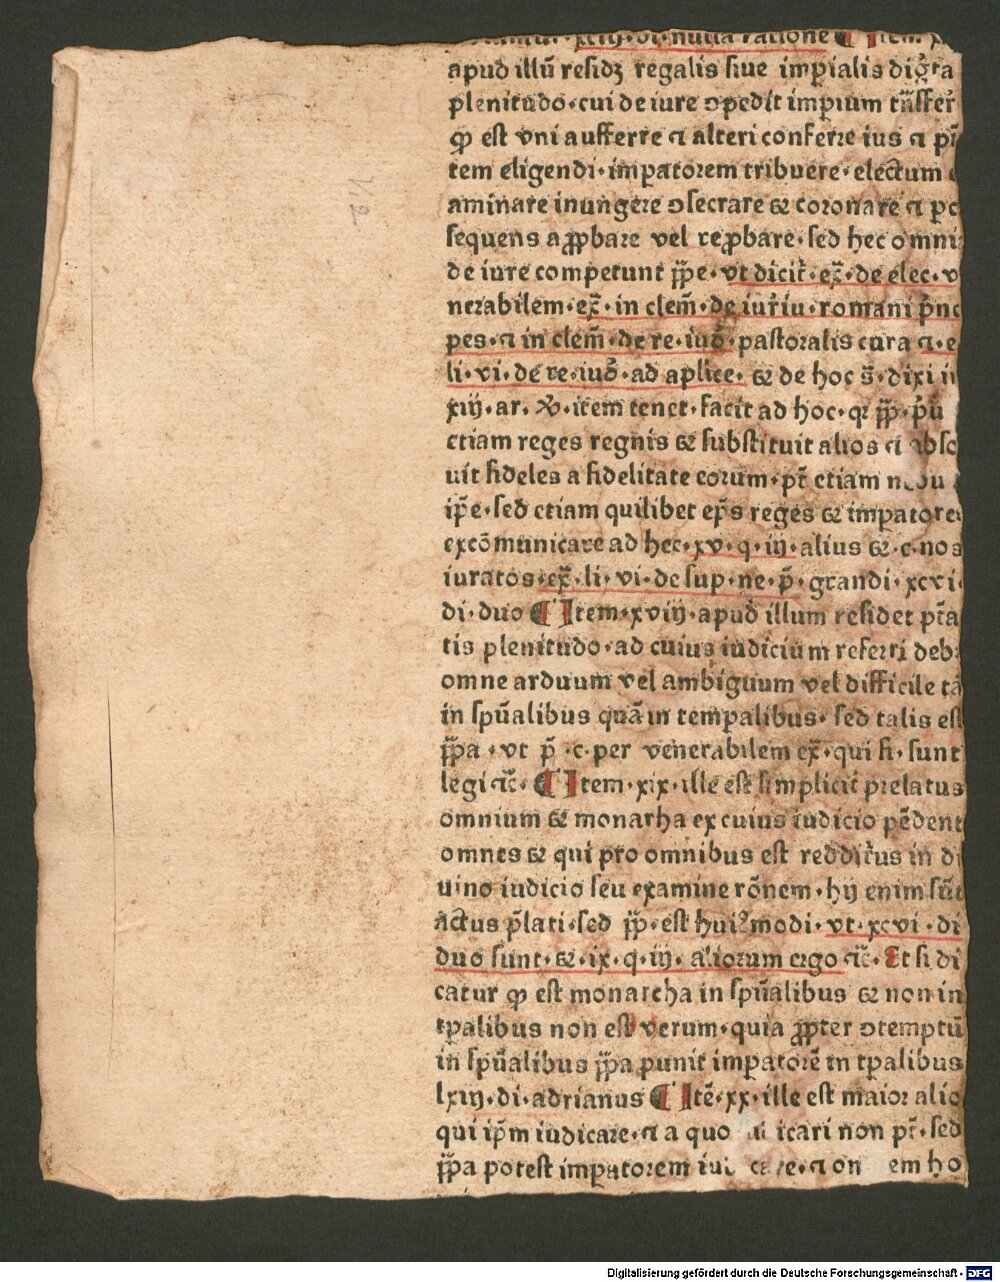 xciij·vt·nulla ratione ¶ Item
apud illū residꝫ regalis siue imꝑialis dig̃ta
plenitudo·cui de iure ↄpedit imꝑium trãsfer
ꝙ est vni aufferre ⁊ alteri conferre ius ⁊
tem eligendi·imꝑatorem tribuere·electum
aminare inungere ↄsecrare ⁊ coronare ⁊ po
sequens aꝓpbare vel reꝓbare·sed hec omni
de iure competunt pp̄e·vt dicit̄·ex̄·de elec·v
nerabilem·ex̄·in clem̄·de iur̄iu·romani p̄nc
pes·⁊ in clem̄·de re·iud̄·pastoralis cura ⁊·e
li·vi·de re·iud̄·ad aplice·⁊ de hoc s̄·dixi
xiij·ar·xv·item tenet·facit ad hoc·qꝛ pp̄·
etiam reges regnis ⁊ substituit alios ⁊ abso
uit fideles a fidelitate eorum·pꝫ etiam
ip̄e·sed etiam quilibet ep̄s reges ⁊ imꝑatores
excōmunicare ad hec·xv·q·iij·alius ⁊·c·nos
iuratos·ex̄·li·vi·de sup·ne·p̄·grandi·xcvi·
di·duo ¶ Item·xviij·apud illum residet
tis plenitudo·ad cuius iudicium referri deb
omne arduum vel ambiguum vel difficile tā
in spūalibus quā in tempalibus·sed talis est
pp̄a·vt p̄·c·per venerabilem ex̄·qui fi·sunt
legi ⁊c̄· ¶ Item·xix·ille est simplicit̄ prelatus
omnium ⁊ monarha ex cuius iudicio pēdent
omnes ⁊ qui pro omnibus est reddit̄us in di
uino iudicio seu examine rōnem·hij enim sūt
actus p̄lati·sed pp̄·est huiꝰmodi·vt·xcvi·di
duo sunt·⁊·ix·q·iij·aliorum ergo ⁊c̄·Et si di
catur ꝙ est monarcha in spūalibus ⁊ non in
tpalibus non est verum·quia ꝓpter ↄtemptū
in spūalibus pp̄a punit imꝑatorē in tpalibus
lxiij·di·adrianus ¶ Itē·xx·ille est maior alio
qui ip̄m iudicare·⁊ a quo icari non pt̄·sed
pp̄a potest imꝑatorem ⁊ em ho
Digitalisierung gefördert durch die Deutsche Forschungsgemeinschaft - DFG